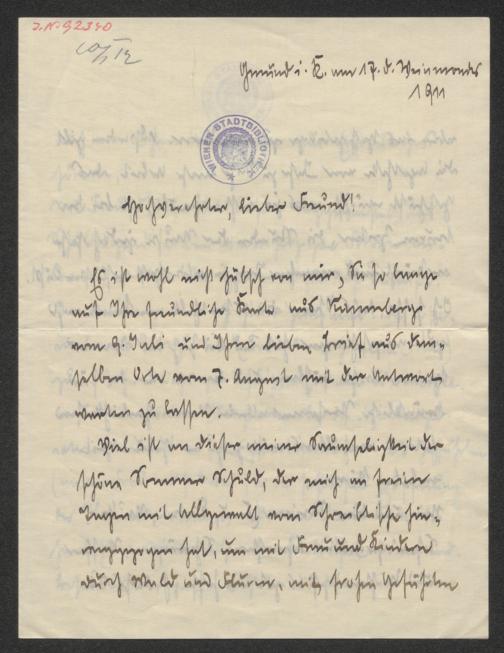 J.N. 92340
WIENER STADTBIBLIOTHEK
Gmünd i. K. am 17. d. Weinmondes
1911
Hochverehrter, lieber Freund!
Es ist wohl nicht hübsch von mir, Sie so lange
auf Ihre freundliche Karte aus
vom 9. Juli und Ihren lieben Brief aus dem-
selben Orte vom 7. August mit der Antwort
warten zu lassen.
Viel ist an dieser meiner Saumseligkeit der
schöne Sommer Schuld, der mich an freien
Tagen mit Allgewalt vom Schreibtische hin-
ausgezogen hat, um mit Frau und Kindern
durch Wald und Fluren, mit frohen Gefühlen